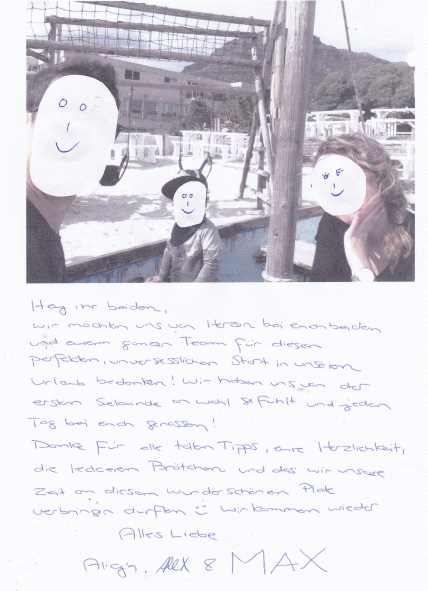 Hey ihr beiden,
wir möchten uns von Herzen bei euch beiden
und eurem ganzen Team für diesen
perfekten, unvergesslichen Start in unseren
Urlaub bedanken! Wir haben uns von der
ersten Sekunde an wohl gefühlt und jeden
Tag bei euch genossen!
Danke für alle tollen Tipps, eure Herzlichkeit,
die leckeren Brötchen und das wir unsere
Zeit an diesem wunderschönen Platz
verbringen durften Wir kommen wieder
Alles Liebe
Alex & MAX